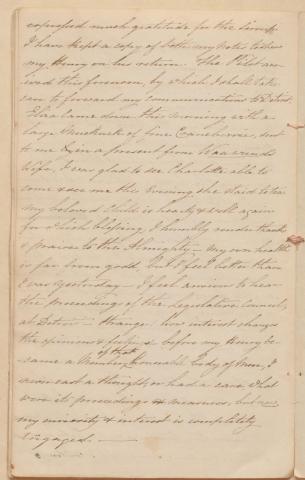 expressed much gratitude for the
I have kept a copy of both my notes to show
my Henry on his return. The Pilot arr
ived this forenoon, by which I shall take
care to forward my communications to Detroit.
Eliza came down this morning with a
large Muckuck of fine Cranberries, sent
to me as a present from Waa
Wife, I was glad to see Charlotte able to
come & see me this Evening she staid to tea
my beloved Child is hearty & well again
for which blessing, I humbly render thanks
& praise to the Almighty — my own health
is far from good, but I feel better than
I was yesterday — I feel anxious to hear
the proceedings of the Legislative Council,
at Detroit — strange! how interest changes
the opinions & feelings before my Henry be-
came a Member of that Honorable Body of Men, I
never cast a thought, or had a care what
were its proceedings & measures, but now
my curiosity & interest is completely
engaged. —